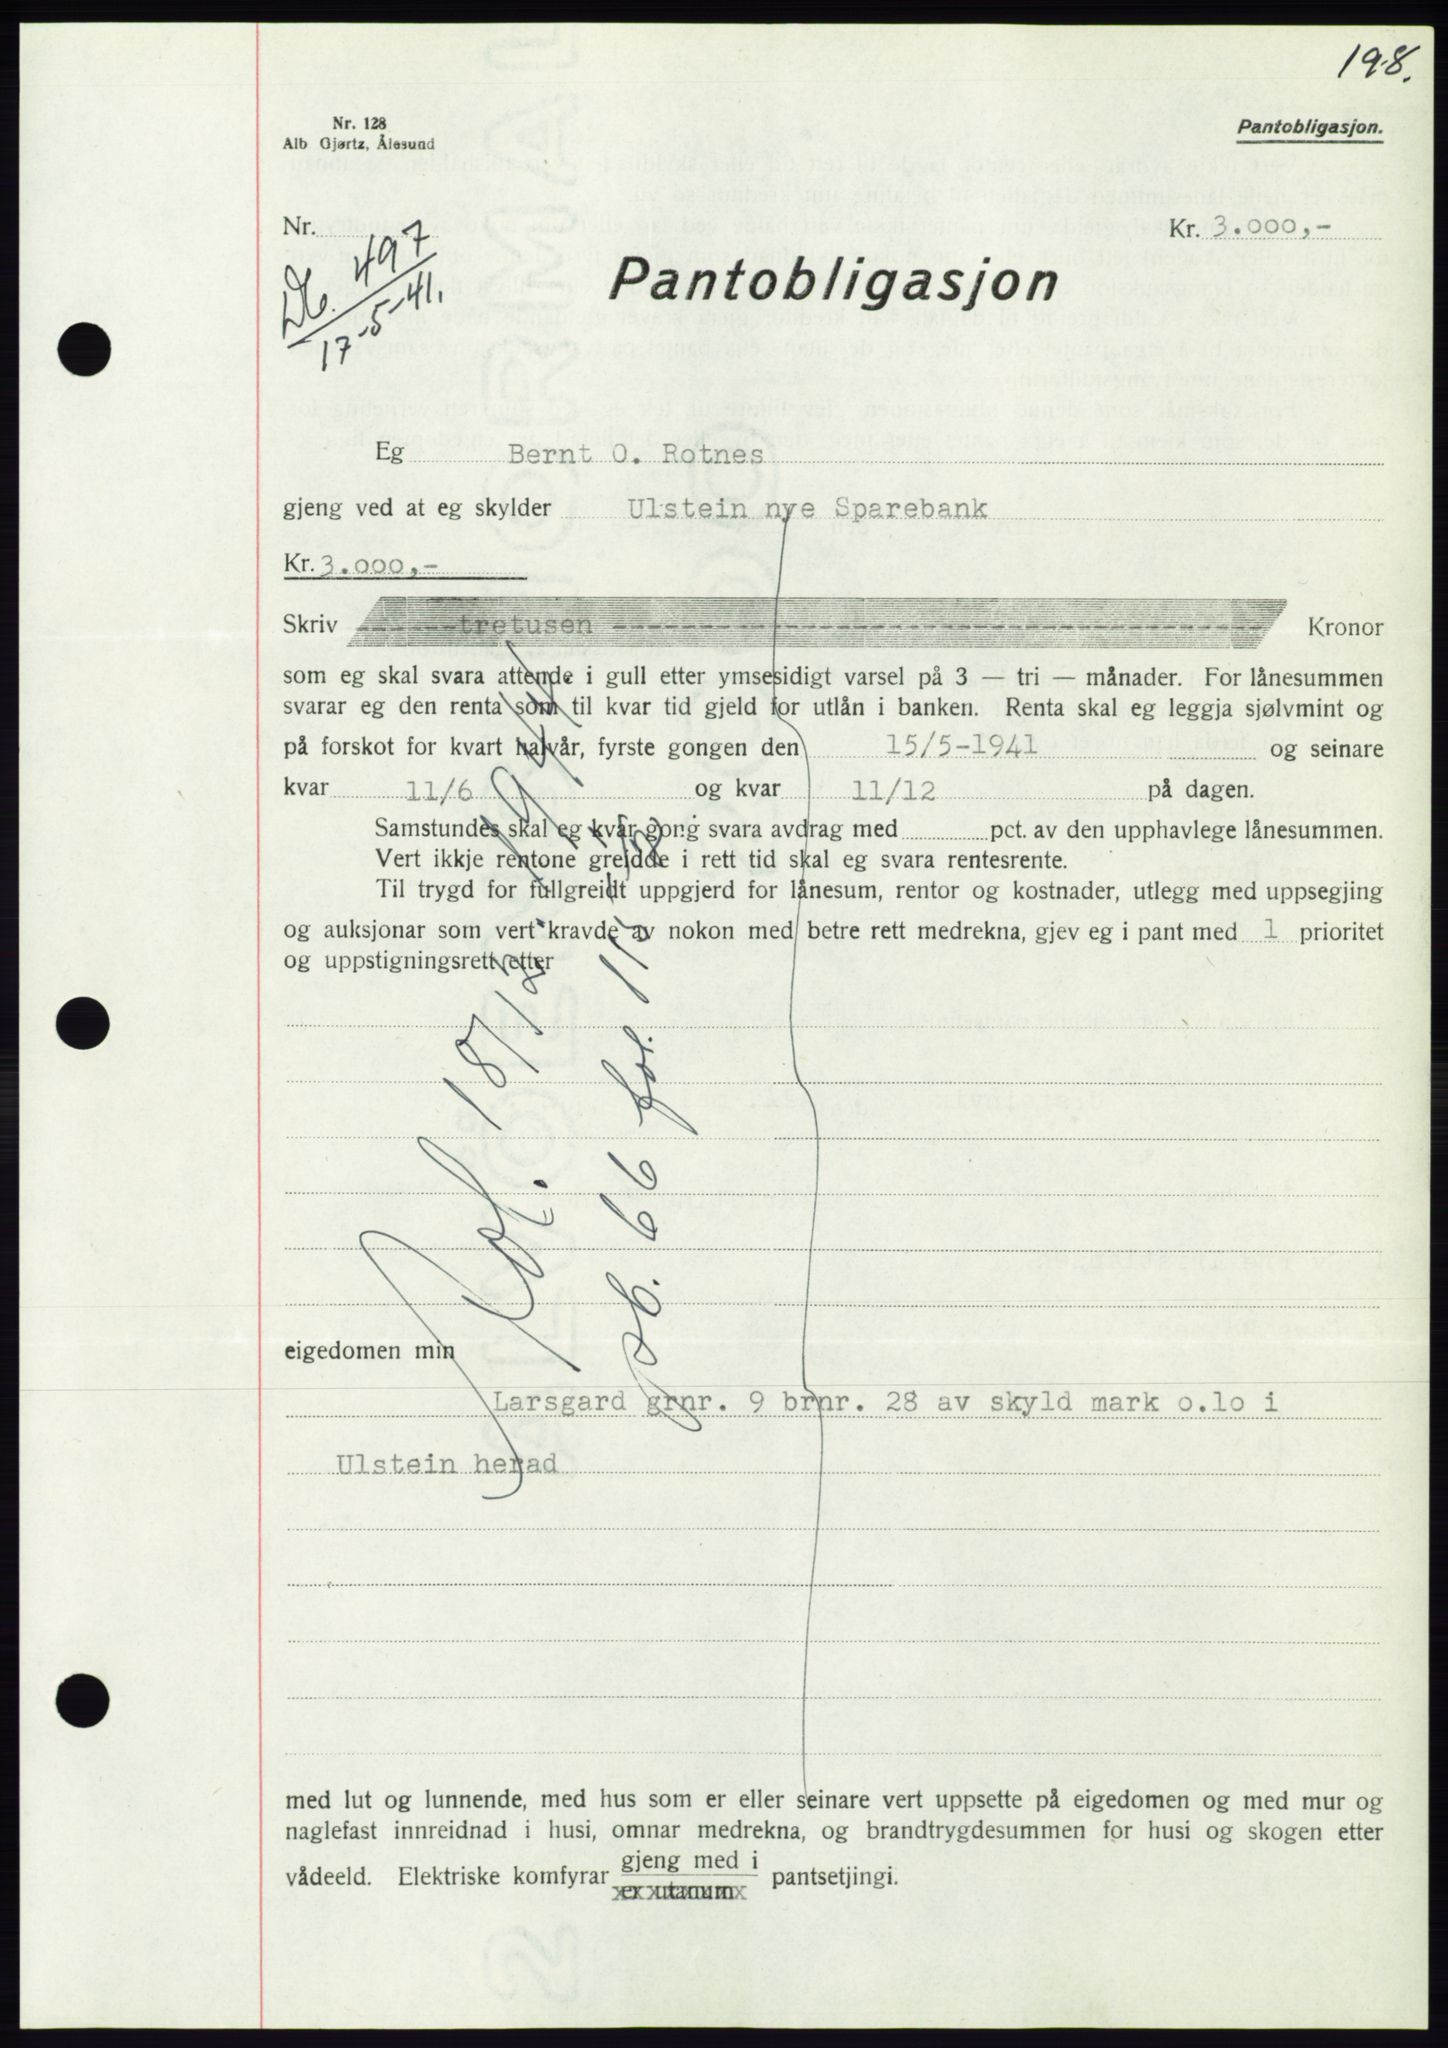 198.
Nr. 128
Alb Gjørtz, Ålesund
Pantobligasjon.
Nr.
Kr. 3.000,-
Db. 497
17-5-41.
Pantobligasjon
Eg Bernt O. Rotnes
gjeng ved at eg skylder Ulstein nye Sparebank
Kr. 3.000,-
Skriv ------tretusen ------------------------------ Kronor
som eg skal svara attende i gull etter ymsesidigt varsel på 3 — tri — månader. For lånesummen
svarar eg den renta som til kvar tid gjeld for utlån i banken. Renta skal eg leggja sjølvmint og
på forskot for kvart halvår, fyrste gongen den 15/5-1941 og seinare
kvar 11/6 og kvar 11/12 på dagen.
Samstundes skal eg kvar gong svara avdrag med pct. av den upphavlege lånesummen.
Vert ikkje rentone greidde i rett tid skal eg svara rentesrente.
Til trygd for fullgreidt uppgjerd for lånesum, rentor og kostnader, utlegg med uppsegjing
og auksjonar som vert kravde av nokon med betre rett medrekna, gjev eg i pant med 1 prioritet
og uppstigningsrett etter
18/12. 1944
pb. 66 fol.
eigedomen min
Larsgard grnr. 9 brnr. 28 av skyld mark 0.10 i
Ulstein herad
med lut og lunnende, med hus som er eller seinare vert uppsette på eigedomen og med mur og
naglefast innreidnad i husi, omnar medrekna, og brandtrygdesummen for husi og skogen etter
vådeeld. Elektriske komfyrar gjeng med i pantsetjingi.
er utanum